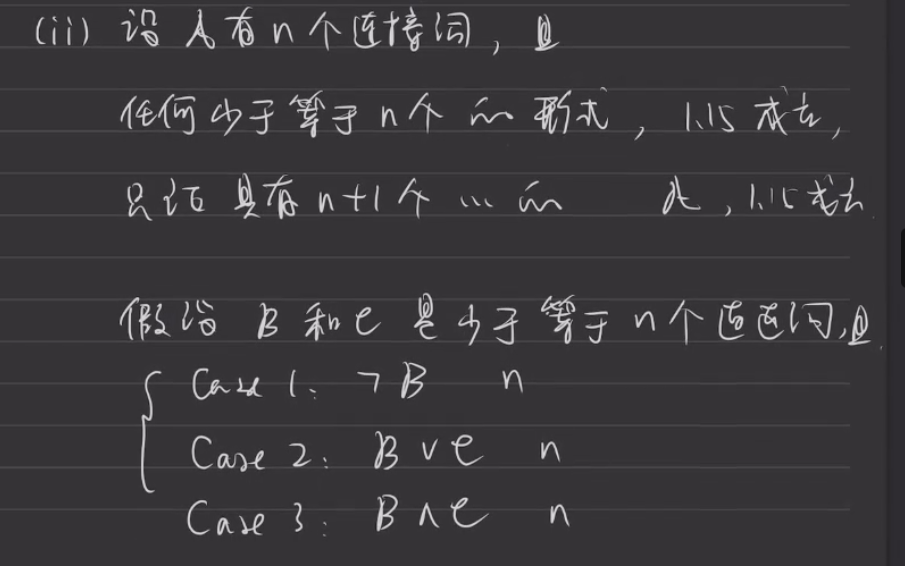 (ii) 设 A 有 n 个连接词，且
任何少于等于 n个 的 形式，1.15 成立，
只证 具有 n+1 个 … 的 式，1.15 成立.
假设 B 和 C 是少于等于 n 个连接词,且
Case 1: ¬B n
Case 2: B ∨ C n
Case 3: B ∧ C n